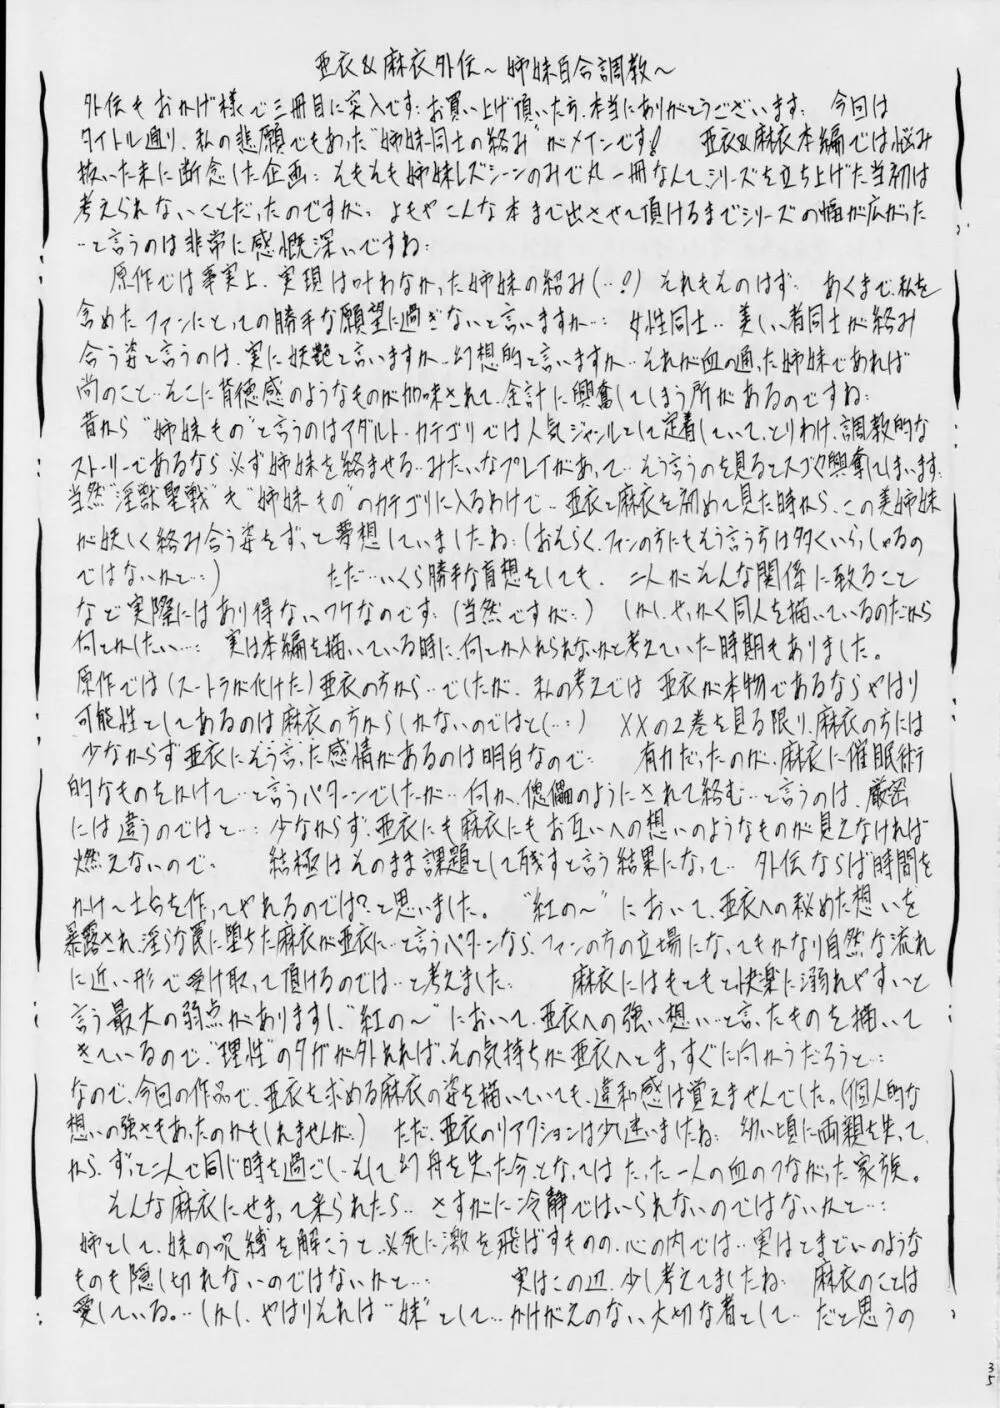 亜衣&麻衣外伝～姉妹百合調教～
外伝もおかげ様で三冊目に突入です…お買い上げ頂いた方、本当にありがとうございます… 今回は
タイトル通り、私の悲願でもあった"姉妹同士の絡み"がメインです! 亜衣&麻衣本編では悩み
抜いた末に断念した企画… そもそも姉妹レズシーンのみで丸一冊なんてシリーズを立ち上げた当初は
考えられないことだったのですが… よもやこんな本まで出させて頂けるまでシリーズの幅が広がった
…と言うのは非常に感慨深いですね…
原作では事実上、実現は叶わなかった姉妹の絡み(…!) それもそのはず… あくまで、私を
含めたファンにとっての勝手な願望に過ぎないと言いますか…… 女性同士… 美しい者同士が絡み
合う姿と言うのは、実に妖艶と言いますか…幻想的と言いますか… それが血の通った姉妹であれば
尚のこと…そこに背徳感のようなものが加味されて、余計に興奮してしまう所があるのですね…
昔から"姉妹もの"と言うのはアダルト・カテゴリでは人気ジャンルとして定着していて、とりわけ、調教的な
ストーリーであるなら必ず姉妹を絡ませる…みたいなプレイがあって… そう言うのを見るとスゴク興奮してしまいます…
当然"淫獣聖戦"も"姉妹もの"のカテゴリに入るわけで… 亜衣と麻衣を初めて見た時から、この美姉妹
が妖しく絡み合う姿をずっと夢想していましたね…(おそらく、ファンの方にもそう言う方は多くいらっしゃるの
ではないかと…) ただ…いくら勝手な妄想をしても、二人がそんな関係に至ること
など実際にはあり得ないワケなのです…(当然ですが…) しかし、せっかく同人を描いているのだから
何とかしたい…… 実は本編を描いている時に、何とか入れられないかと考えていた時期もありました。
原作では(スートラが化けた)亜衣の方から…でしたが、私の考えでは 亜衣が本物であるならやはり
可能性としてあるのは麻衣の方からしかないのではと(…) XXの2巻を見る限り、麻衣の方には
少なからず亜衣にそう言った感情があるのは明白なので… 有力だったのが、麻衣に催眠術
的なものをかけて…と言うパターンでしたが… 何か、傀儡のようにされて絡む…と言うのは、厳密
には違うのではと…… 少なからず、亜衣にも麻衣にもお互いへの想いのようなものが見えなければ
燃えないので… 結極はそのまま課題として残すと言う結果になって… 外伝ならば時間を
かけ～土台を作ってやれるのでは?と思いました。 "紅の～"において、亜衣への秘めた想いを
暴露され、淫らな罠に堕ちた麻衣が亜衣に…と言うパターンなら、ファンの方の立場になってもかなり自然な流れ
に近い形で受け取って頂けるのでは…と考えました… 麻衣にはもともと快楽に溺れやすいと
言う最大の弱点がありますし、"紅の～"において、亜衣への強い想い…と言ったものを描いて
きているので、"理性"のタガが外れれば、その気持ちが亜衣へとまっすぐに向かうだろうと……
なので、今回の作品で、亜衣を求める麻衣の姿を描いていても、違和感は覚えませんでした。(個人的な
想いの強さもあったのかもしれませんが…) ただ、亜衣のリアクションは少し迷いましたね… 幼い頃に両親を失って
から、ずっと二人で同じ時を過ごし、そして幻舟を失った今となってはたった一人の血のつながった家族。
そんな麻衣にせまって来られたら… さすがに冷静ではいられないのではないかと……
姉として、妹の呪縛を解こうと、必死に激を飛ばすものの、心の内では… 実はとまどいのような
ものも隠し切れないのではないかと…… 実はこの辺、少し考えてましたね… 麻衣のことは
愛している。… しかし、やはりそれは"妹"として…かけがえのない大切な者として… だと思うの
35